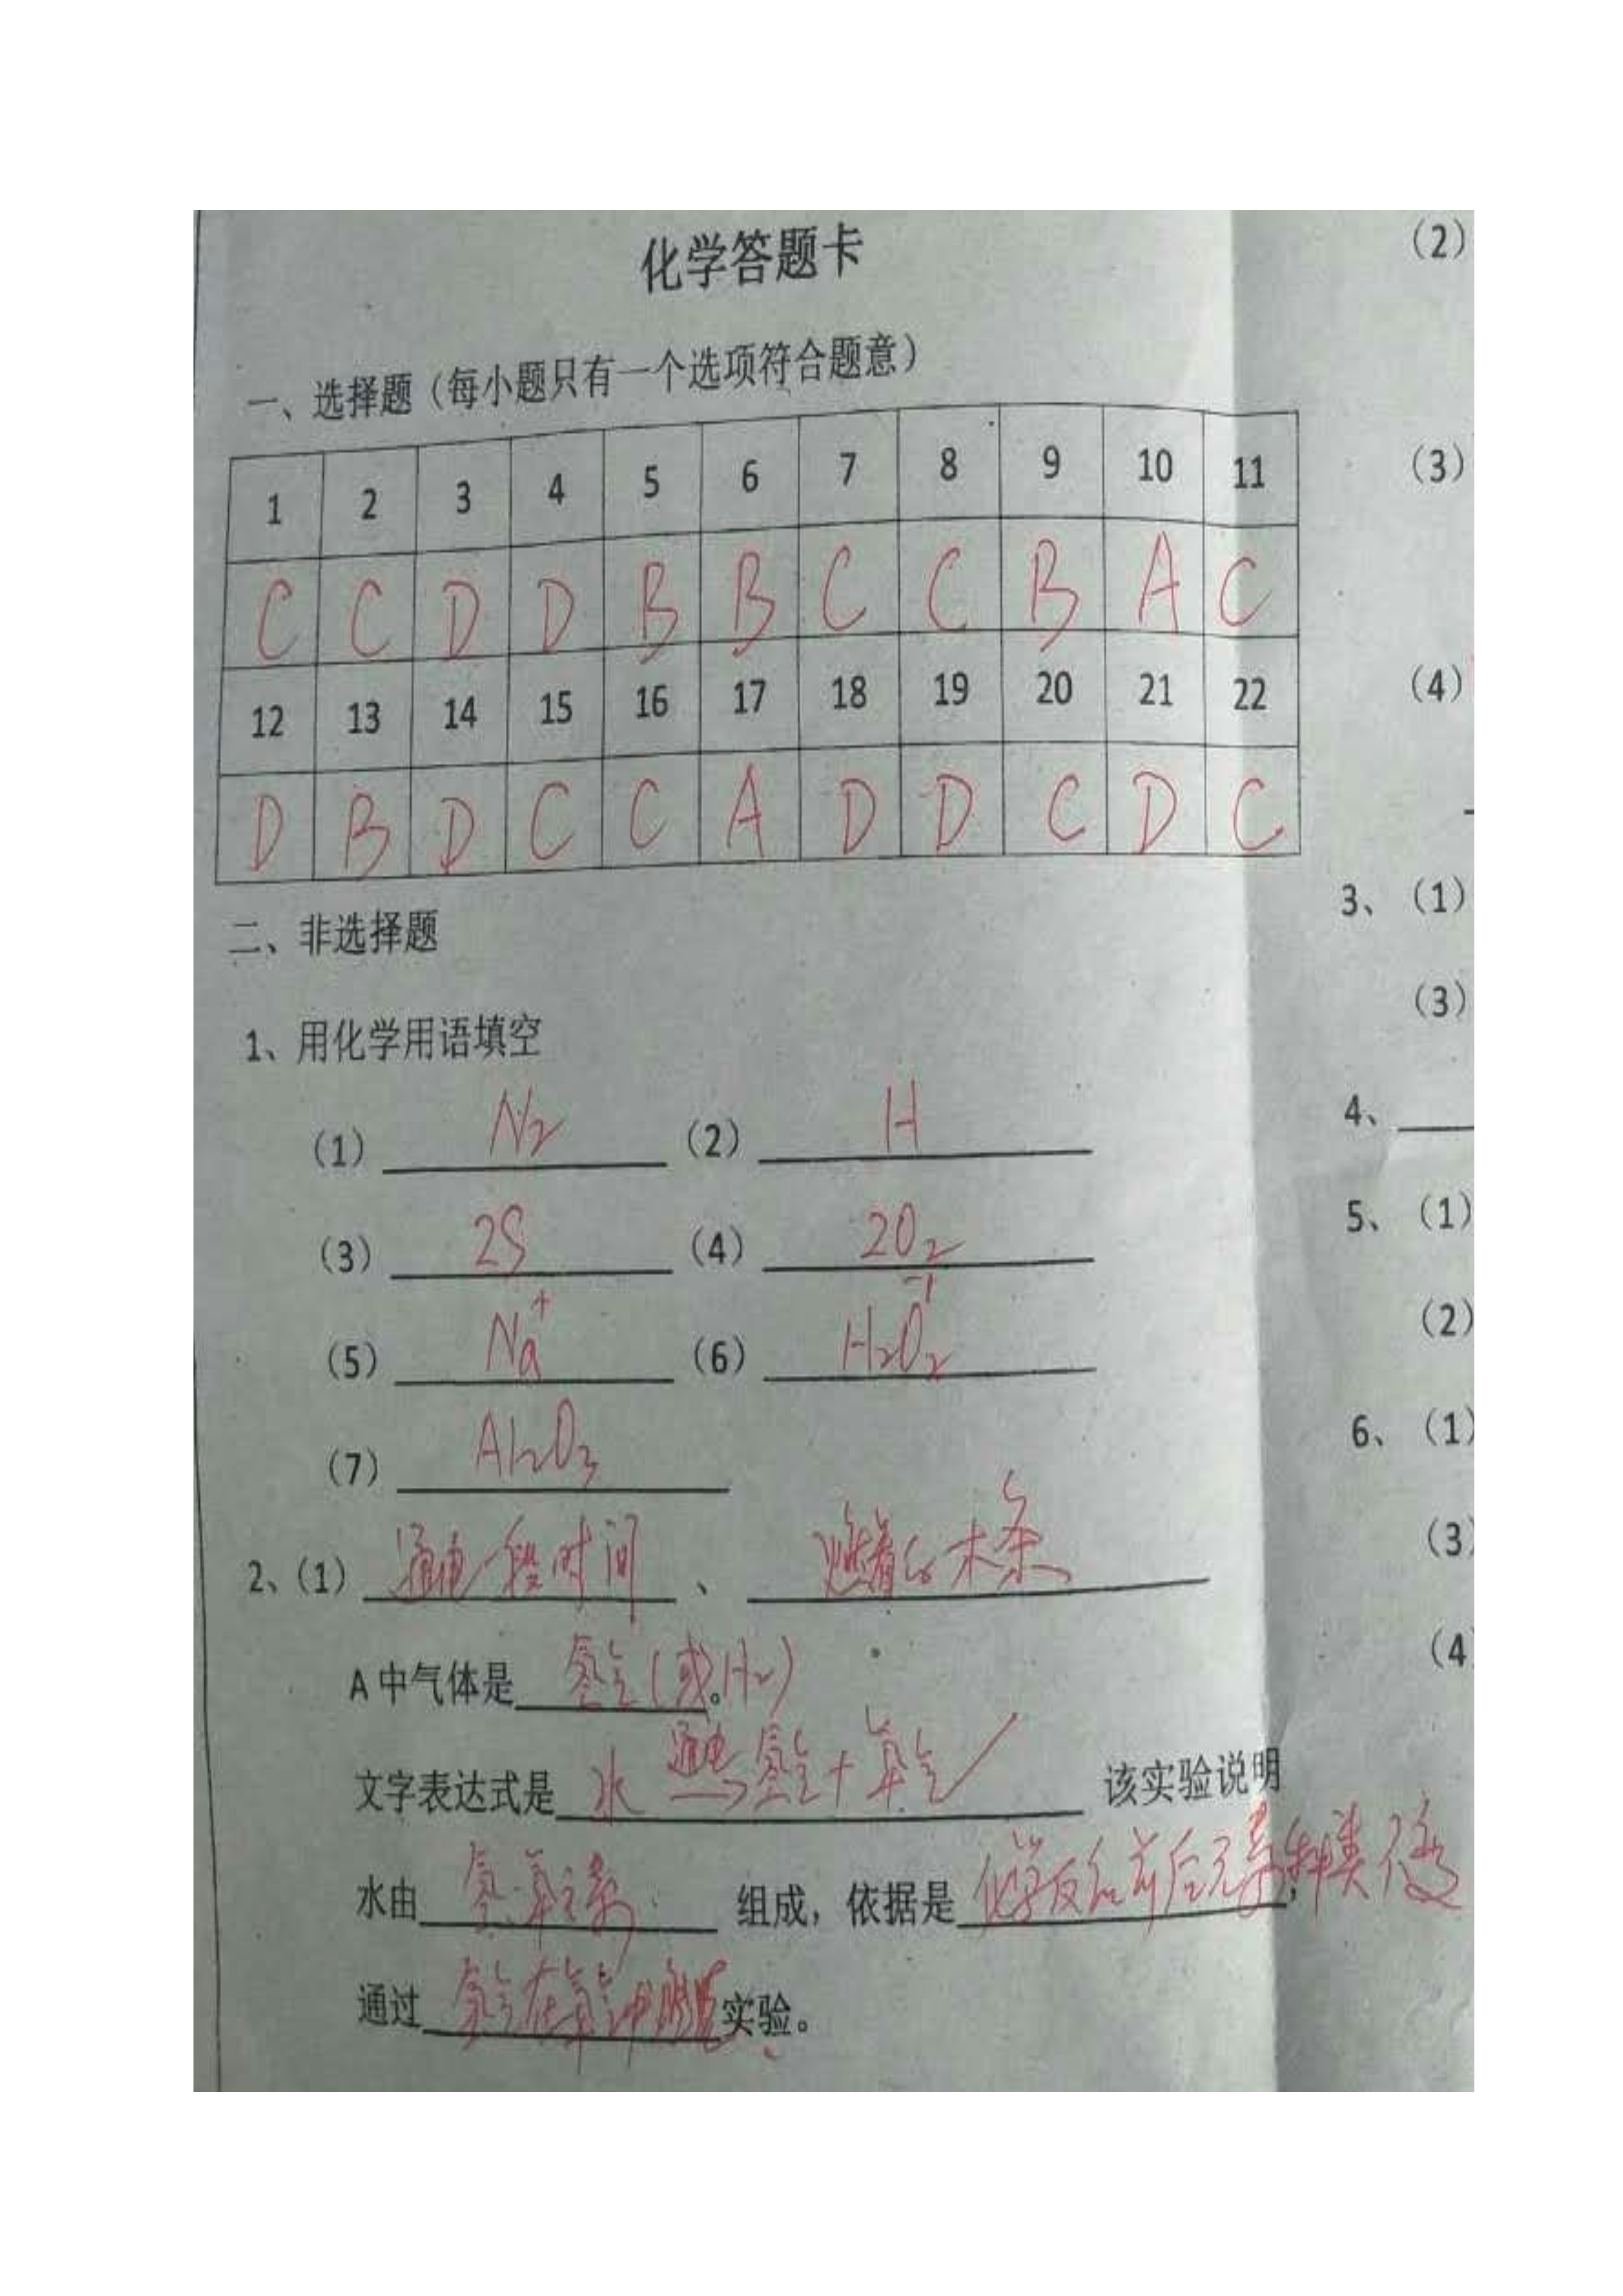 化学答题卡
一、选择题（每小题只有一个选项符合题意）
1 2 3 4 5 6 7 8 9 10 11
C C D D B B C C B A C
12 13 14 15 16 17 18 19 20 21 22
D B D C C A D D C D C
二、非选择题
1、用化学用语填空
（1） N₂ （2） H
（3） 2S （4） 2O₂
（5） Na⁺ （6） H₂O₂ -1
（7） Al₂O₃
2、（1） 通电一段时间 、 燃着的木条
A中气体是 氢气（或H₂）。
文字表达式是 水 通电→ 氢气+氧气 该实验说明
水由 氢、氧元素 组成，依据是 化学反应前后元素种类不变，
通过 氢气在氧气中燃烧 实验。
（2）
（3）
（4）
3、（1）
（3）
4、
5、（1）
（2）
6、（1）
（3）
（4